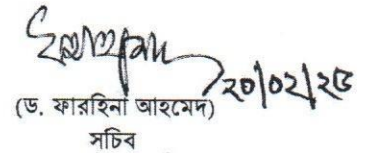 ২০/০২/২৫
(ড. ফারহিনা আহমেদ)
সচিব